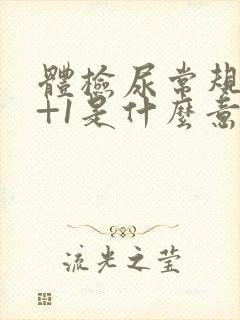 體檢尿常規
+1是什麼意
流光之莹